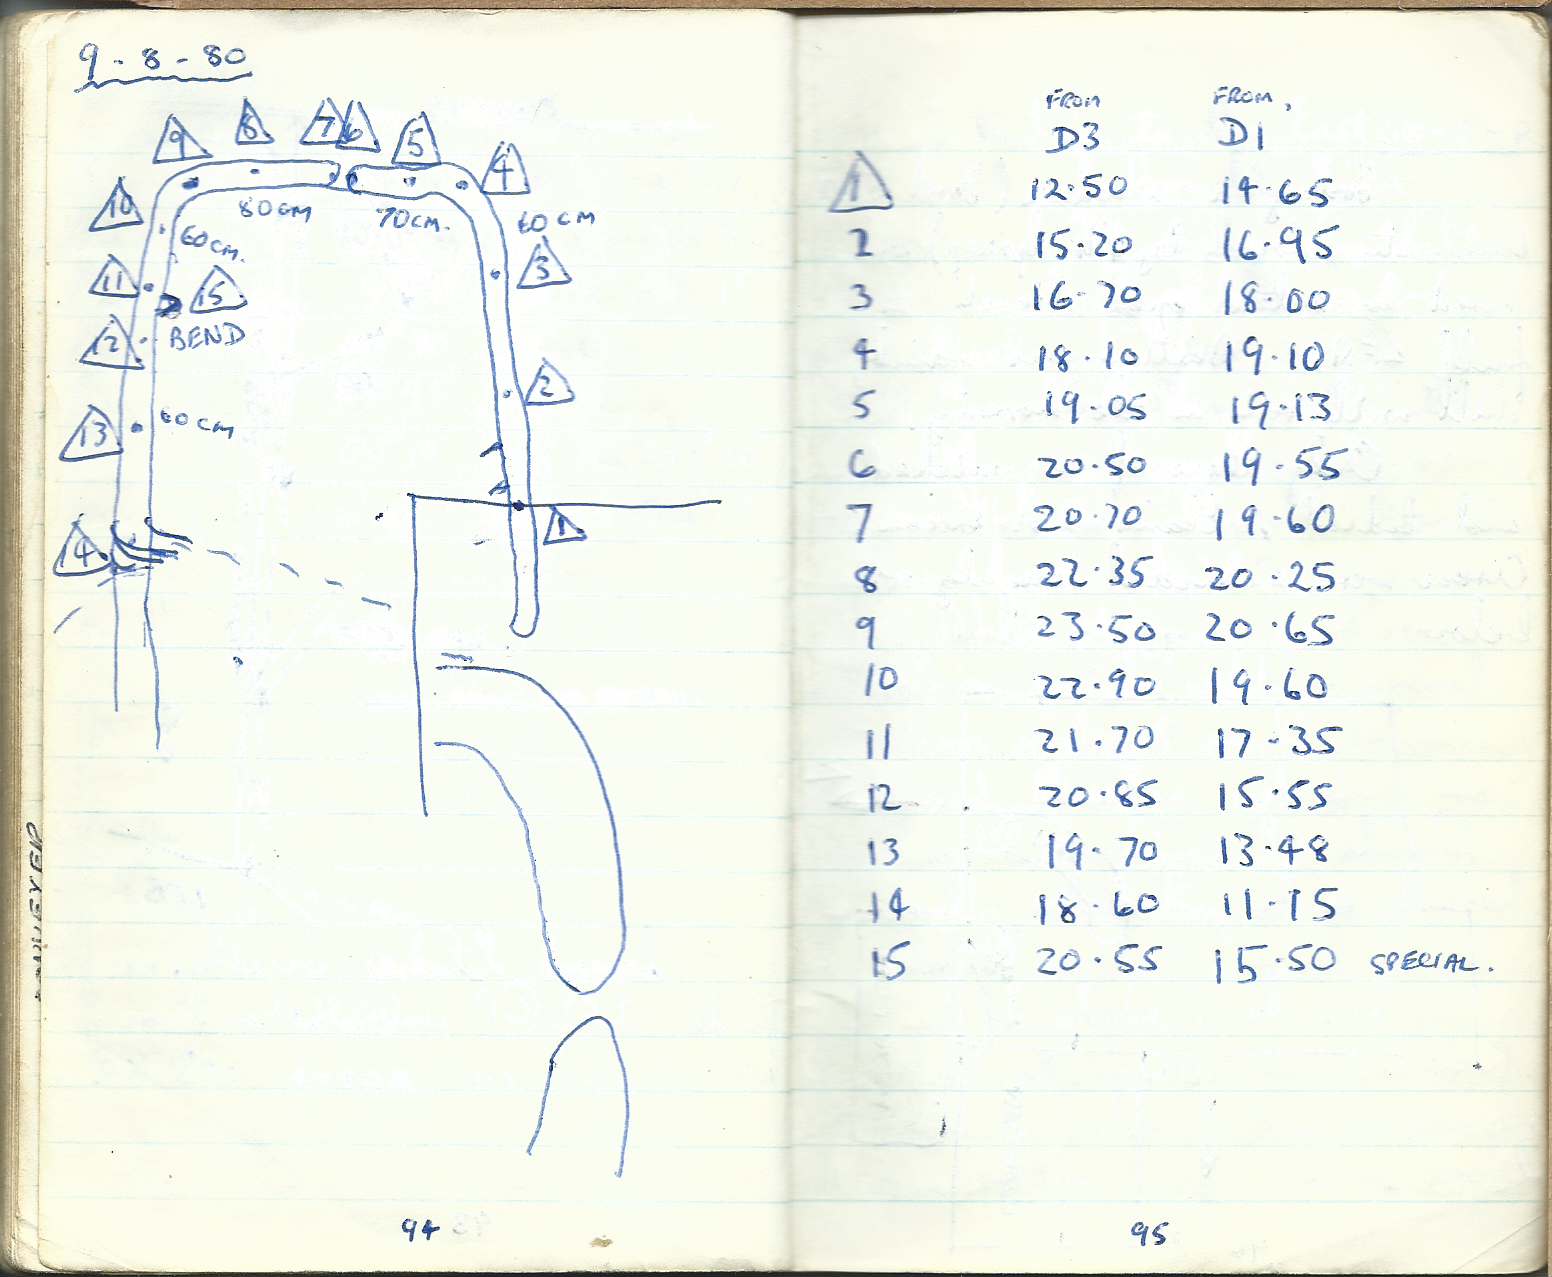 9-8-80
9 8 7 6 5 4
10 80CM 70CM. 60CM
60CM. 3
11 15
12 BEND 2
13 60CM
14 1
94
FROM FROM,
D3 D1
1 12.50 14.65
2 15.20 16.95
3 16.70 18.00
4 18.10 19.10
5 19.05 19.13
6 20.50 19.55
7 20.70 19.60
8 22.35 20.25
9 23.50 20.65
10 22.90 19.60
11 21.70 17.35
12 20.85 15.55
13 19.70 13.48
14 18.60 11.15
15 20.55 15.50 SPECIAL.
95